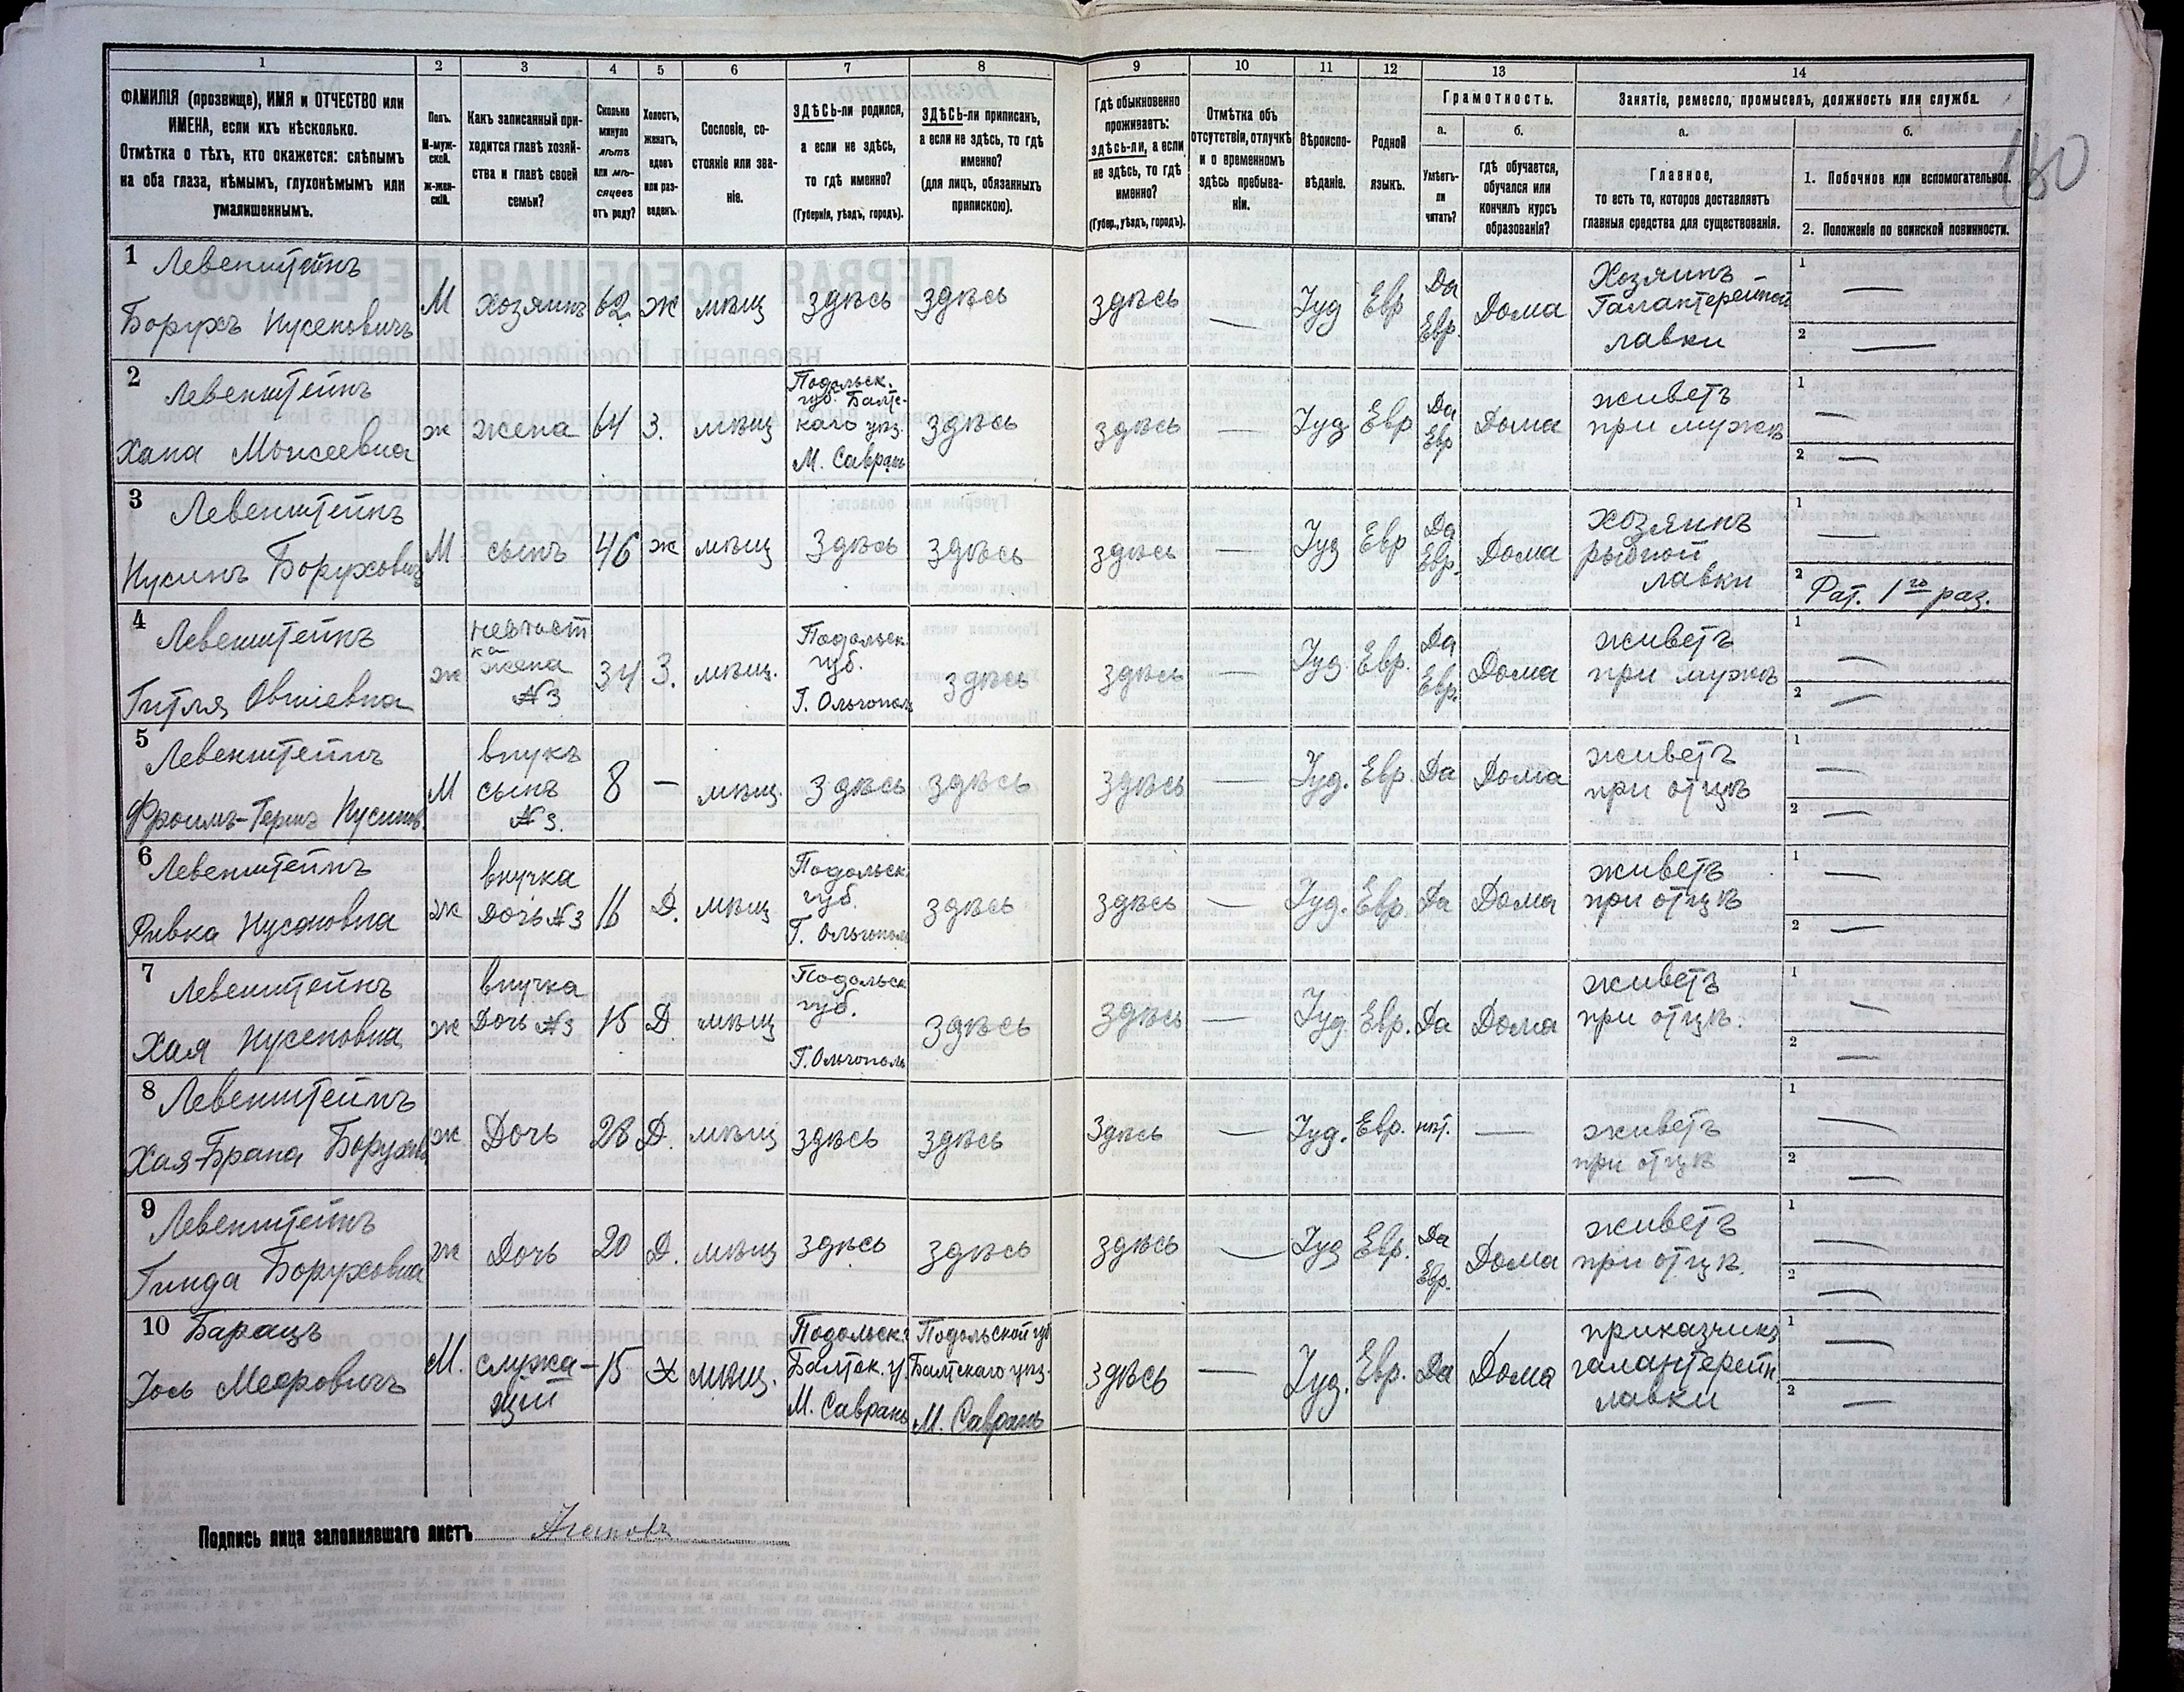 1 2 3 4 5 6 7 8 9 10 11 12 13 14
ФАМИЛІЯ (прозвище), ИМЯ и ОТЧЕСТВО или
ИМЕНА, если ихъ нѣсколько.
Отмѣтка о тѣхъ, кто окажется: слѣпымъ
на оба глаза, нѣмымъ, глухонѣмымъ или
умалишеннымъ.
Полъ.
М-муж-
ской.
Ж-жен-
скій.
Какъ записанный при-
ходится главѣ хозяй-
ства и главѣ своей
семьи?
Сколько
минуло
лѣтъ
или мѣ-
сяцевъ
отъ роду?
Холостъ,
женатъ,
вдовъ
или раз-
веденъ.
Сословіе, со-
стояніе или зва-
ніе.
ЗДѢСЬ-ли родился,
а если не здѣсь,
то гдѣ именно?
(Губернія, уѣздъ, городъ).
ЗДѢСЬ-ли приписанъ,
а если не здѣсь, то гдѣ
именно?
(для лицъ, обязанныхъ
припискою).
Гдѣ обыкновенно
проживаетъ:
здѣсь-ли, а если
не здѣсь, то гдѣ
именно?
(Губер., уѣздъ, городъ).
Отмѣтка объ
отсутствіи, отлучкѣ
и о временномъ
здѣсь пребыва-
ніи.
Вѣроиспо-
вѣданіе.
Родной
языкъ.
Грамотность.
а.
Умѣетъ-
ли
читать?
б.
гдѣ обучается,
обучался или
кончилъ курсъ
образованія?
Занятіе, ремесло, промыселъ, должность или служба.
а.
Главное,
то есть то, которое доставляетъ
главныя средства для существованія.
б.
1. Побочное или вспомогательное.
2. Положеніе по воинской повинности.
180
1 Левенштейнъ
Борухъ Нусеновичъ
М
хозяинъ
62
ж
мѣщ
здѣсь
здѣсь
здѣсь
—
Іуд
Евр
Да
Евр.
Дома
Хозяинъ -
Галантерейной
лавки
1 —
2 —
2
Левенштейнъ
Хана Мошеевна
ж
жена
64
З.
мѣщ
Подольск.
губ. Балт-
каго уѣз.
М. Саврань
здѣсь
здѣсь
—
Іуд
Евр
Да
Евр
Дома
живетъ
при мужѣ
1 —
2 —
3
Левенштейнъ
Нусинъ Борухович
М
сынъ
46
ж
мѣщ
Здѣсь
здѣсь
здѣсь
—
Іуд
Евр
Да
Евр.
Дома
хозяинъ
рыбной
лавки
1 —
2 Рат. 1го раз.
4
Левенштейнъ
Гитля Овшіевна
ж
невѣст
ка
жена
№3
34
З.
мѣщ.
Подольск
губ.
Г. Ольгополь
здѣсь
здѣсь
—
Іуд
Евр.
Да
Евр.
Дома
живетъ
при мужѣ
1 —
2 —
5
Левенштейнъ
Фроимъ-Гершъ Нусинов.
М
внукъ
сынъ
№3.
8
—
мѣщ.
здѣсь
здѣсь
здѣсь
—
Іуд.
Евр.
Да
Дома
живетъ
при отцѣ
1 —
2 —
6
Левенштейнъ
Ривка Нусоновна
ж
внучка
Дочь №3
16
Д.
мѣщ
Подольск
губ.
Г. Ольгополь
здѣсь
здѣсь
—
Іуд.
Евр.
Да
Дома
живетъ
при отцѣ
1 —
2 —
7
Левенштейнъ
Хая Нусеновна
ж
внучка
Дочь №3
15
Д
мѣщ
Подольск
губ.
Г. Ольгополь
здѣсь
здѣсь
—
Іуд.
Евр.
Да
Дома
живетъ
при отцѣ.
1 —
2 —
8
Левенштейнъ
Хая-Брана Борухов
ж
Дочь
28
Д.
мѣщ
здѣсь
здѣсь
Здѣсь
—
Іуд.
Евр.
нѣт.
—
живетъ
при отцѣ
1 —
2 —
9
Левенштейнъ
Гинда Боруховна
ж
Дочь
20
Д.
мѣщ
здѣсь
здѣсь
здѣсь
—
Іуд
Евр.
Да
Евр.
Дома
живетъ
при отцѣ.
1 —
2 —
10 Барацъ
Іось Мееровичъ
М.
служа-
щій
15
х
мѣщ.
Подольск.
Балтск. у.
М. Саврань
Подольской губ
Балтскаго уѣз.
М. Саврань
здѣсь
—
Іуд.
Евр.
Да
Дома
приказчикъ
галантерейн
лавки
1 —
2 —
Подпись лица заполнявшаго листъ